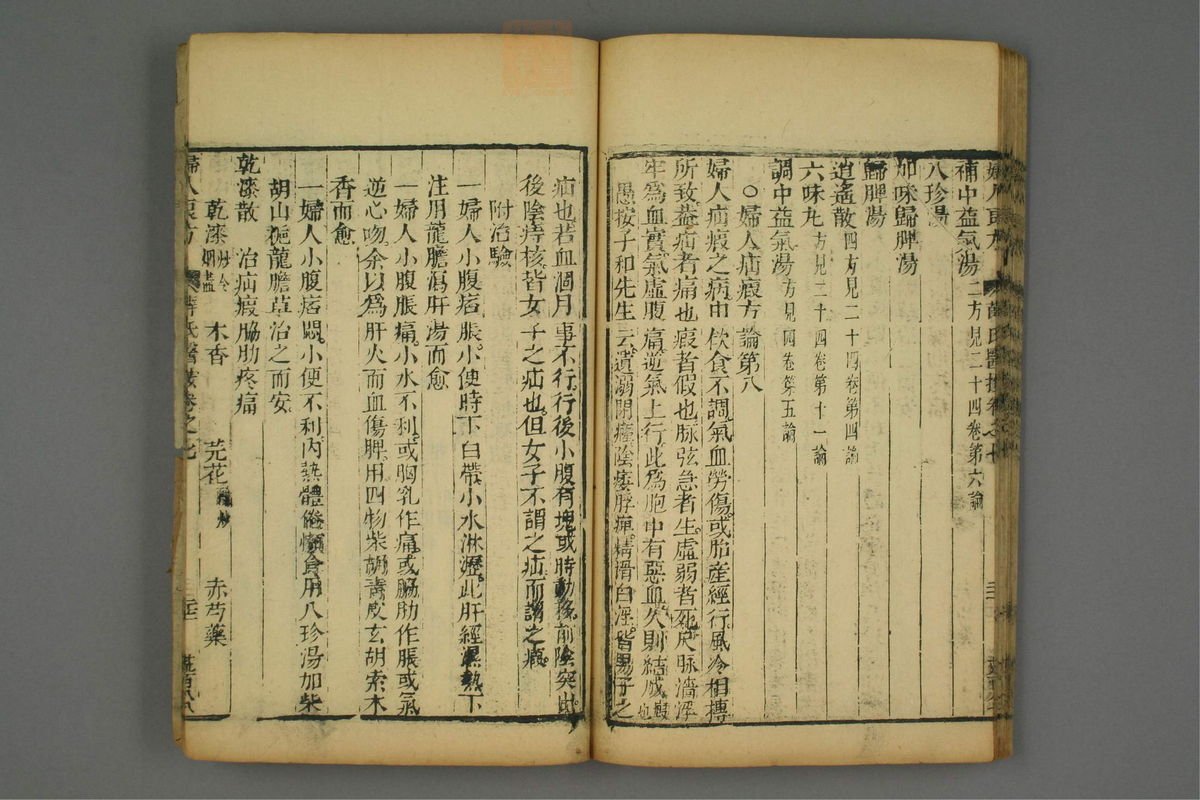 補中益氣湯二方見二十四卷第六論
八珍湯
加味歸脾湯
歸脾湯
逍遙散四方見二十四卷第四論
六味丸方見二十四卷第十一論
調中益氣湯方見四卷第五論
○婦人疝瘕方論第八
婦人疝瘕之病由飲食不調氣血勞傷或胎產經行風冷相搏
所致蓋疝者痛也瘕者假也脉弦急者生虛弱者死尺脉濇浮
牢爲血實氣虛腹痛逆氣上行此爲胞中有惡血久則結成瘕也
愚按子和先生云遺溺閉癃陰痿脬痺精滑白淫皆男子之
疝也若血涸月事不行行後小腹有塊或時動移前陰突出
後陰痔核皆女子之疝也但女子不謂之疝而謂之瘕
附治驗
一婦人小腹痞脹小便時下白帶小水淋瀝此肝經濕熱下
注用龍膽瀉肝湯而愈
一婦人小腹脹痛小水不利或胸乳作痛或脇肋作脹或氣
逆心吻余以爲肝火而血傷脾用四物柴胡靑皮玄胡索木
香而愈
一婦人小腹痞悶小便不利內熱體倦懶食用八珍湯加柴
胡山梔龍膽草治之而安
乾漆散 治疝瘕脇肋疼痛
乾漆炒令烟盡 木香 芫花醋炒 赤芍藥
婦人良方 薛氏醫按卷之七